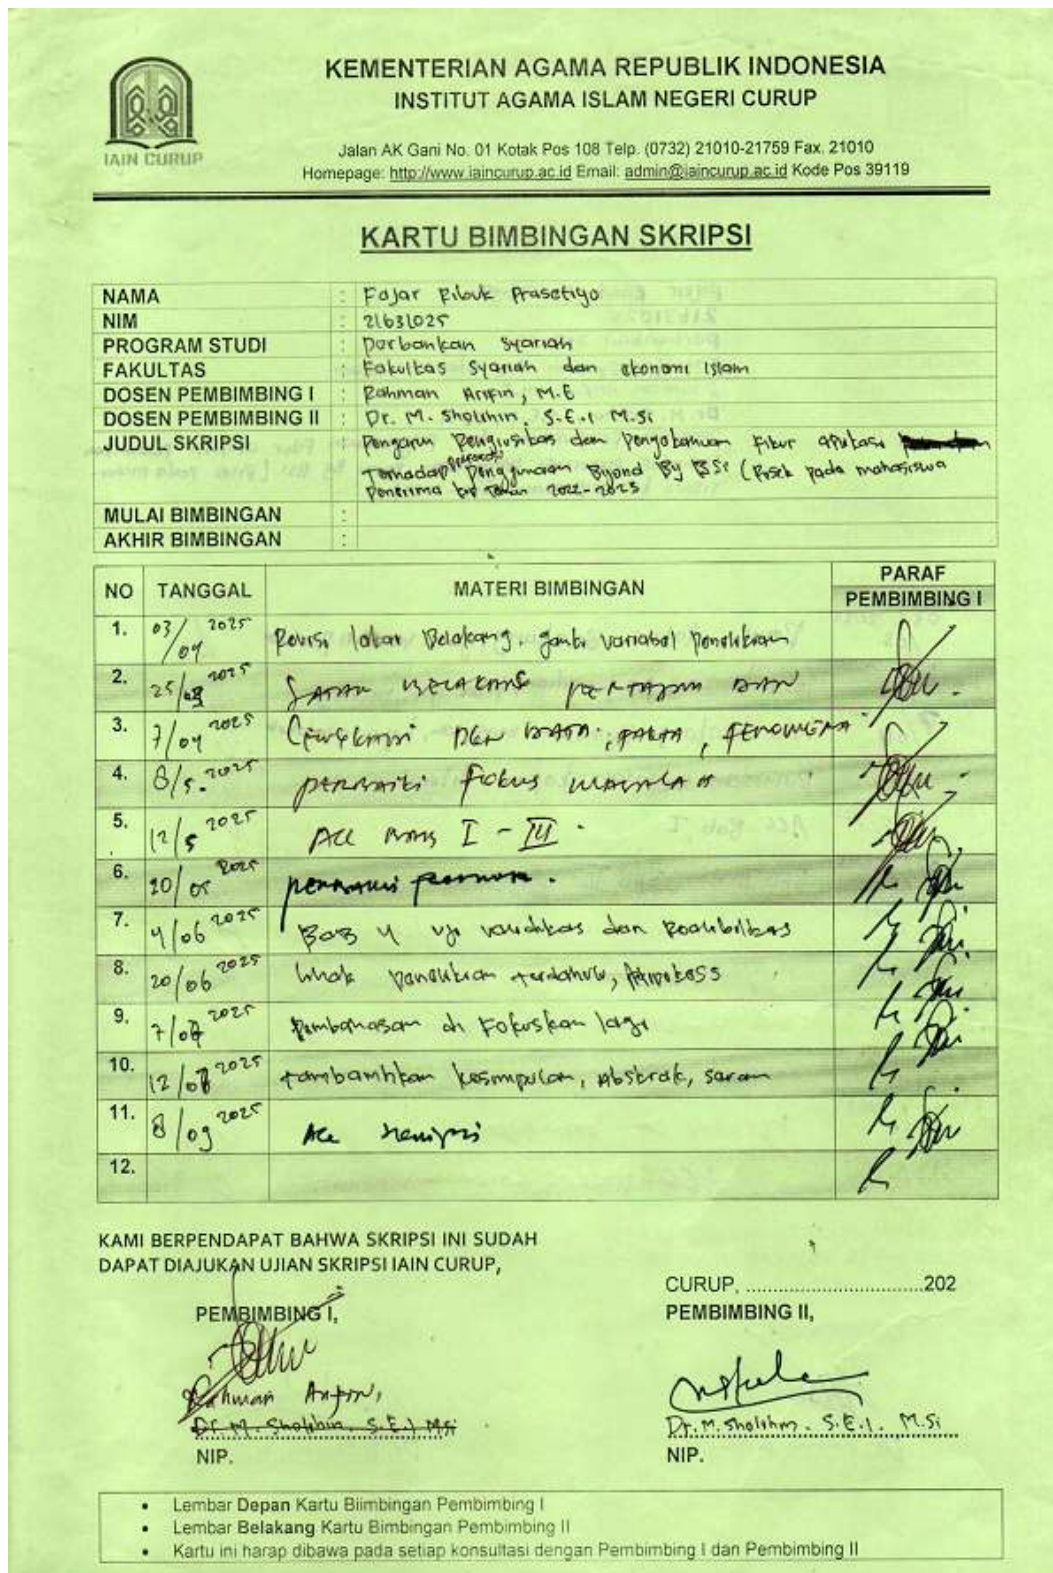 KEMENTERIAN AGAMA REPUBLIK INDONESIA
INSTITUT AGAMA ISLAM NEGERI CURUP
IAIN CURUP
Jalan AK Gani No. 01 Kotak Pos 108 Telp. (0732) 21010-21759 Fax. 21010
Homepage: http://www.iaincurup.ac.id Email: admin@iaincurup.ac.id Kode Pos 39119
KARTU BIMBINGAN SKRIPSI
NAMA : Fajar Ribuk Prasetiyo
NIM : 21631025
PROGRAM STUDI : Perbankan Syariah
FAKULTAS : Fakultas Syariah dan ekonomi Islam
DOSEN PEMBIMBING I : Rahman Arifin, M.E
DOSEN PEMBIMBING II : Dr. M. Sholihin, S.E.I M.Si
JUDUL SKRIPSI : Pengaruh Religiusitas dan Pengetahuan Fitur aplikasi
Terhadap Penggunaan Byond By BSI ( pada mahasiswa
Penerima KIP Tahun 2022-2023
MULAI BIMBINGAN :
AKHIR BIMBINGAN :
NO TANGGAL MATERI BIMBINGAN PARAF
PEMBIMBING I
1. 03/04 2025 Revisi latar Belakang, ganti variabel Penelitian
2. 25/ 2025 LATAR BELAKANG PERTAJAM DAN
3. 7/04 2025 DGN DATA, FAKTA, FENOMENA
4. 8/5. 2025 PERBAIKI FOKUS MASALAH
5. 12/5 2025 ACC BAB I - III.
6. 20/05 2025 PERBAIKI
7. 4/06 2025 BAB 4 uji validitas dan Realibilitas
8. 20/06 2025 Penelitian terdahulu, Hipotesis
9. 7/ 2025 Pembahasan di Fokuskan lagi
10. 12/ 2025 tambahkan kesimpulan, Abstrak, saran
11. 8/09 2025 Acc Skripsi
12.
KAMI BERPENDAPAT BAHWA SKRIPSI INI SUDAH
DAPAT DIAJUKAN UJIAN SKRIPSI IAIN CURUP,
CURUP, ..............................202
PEMBIMBING I,
PEMBIMBING II,
Rahman Arifin,
Dr. M. Sholihin, S.E.I MSi
Dr. M. Sholihin, S.E.I. M.Si
NIP.
NIP.
• Lembar Depan Kartu Biimbingan Pembimbing I
• Lembar Belakang Kartu Bimbingan Pembimbing II
• Kartu ini harap dibawa pada setiap konsultasi dengan Pembimbing I dan Pembimbing II